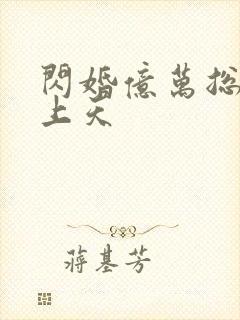 閃婚億萬總
上天
蔣基芳